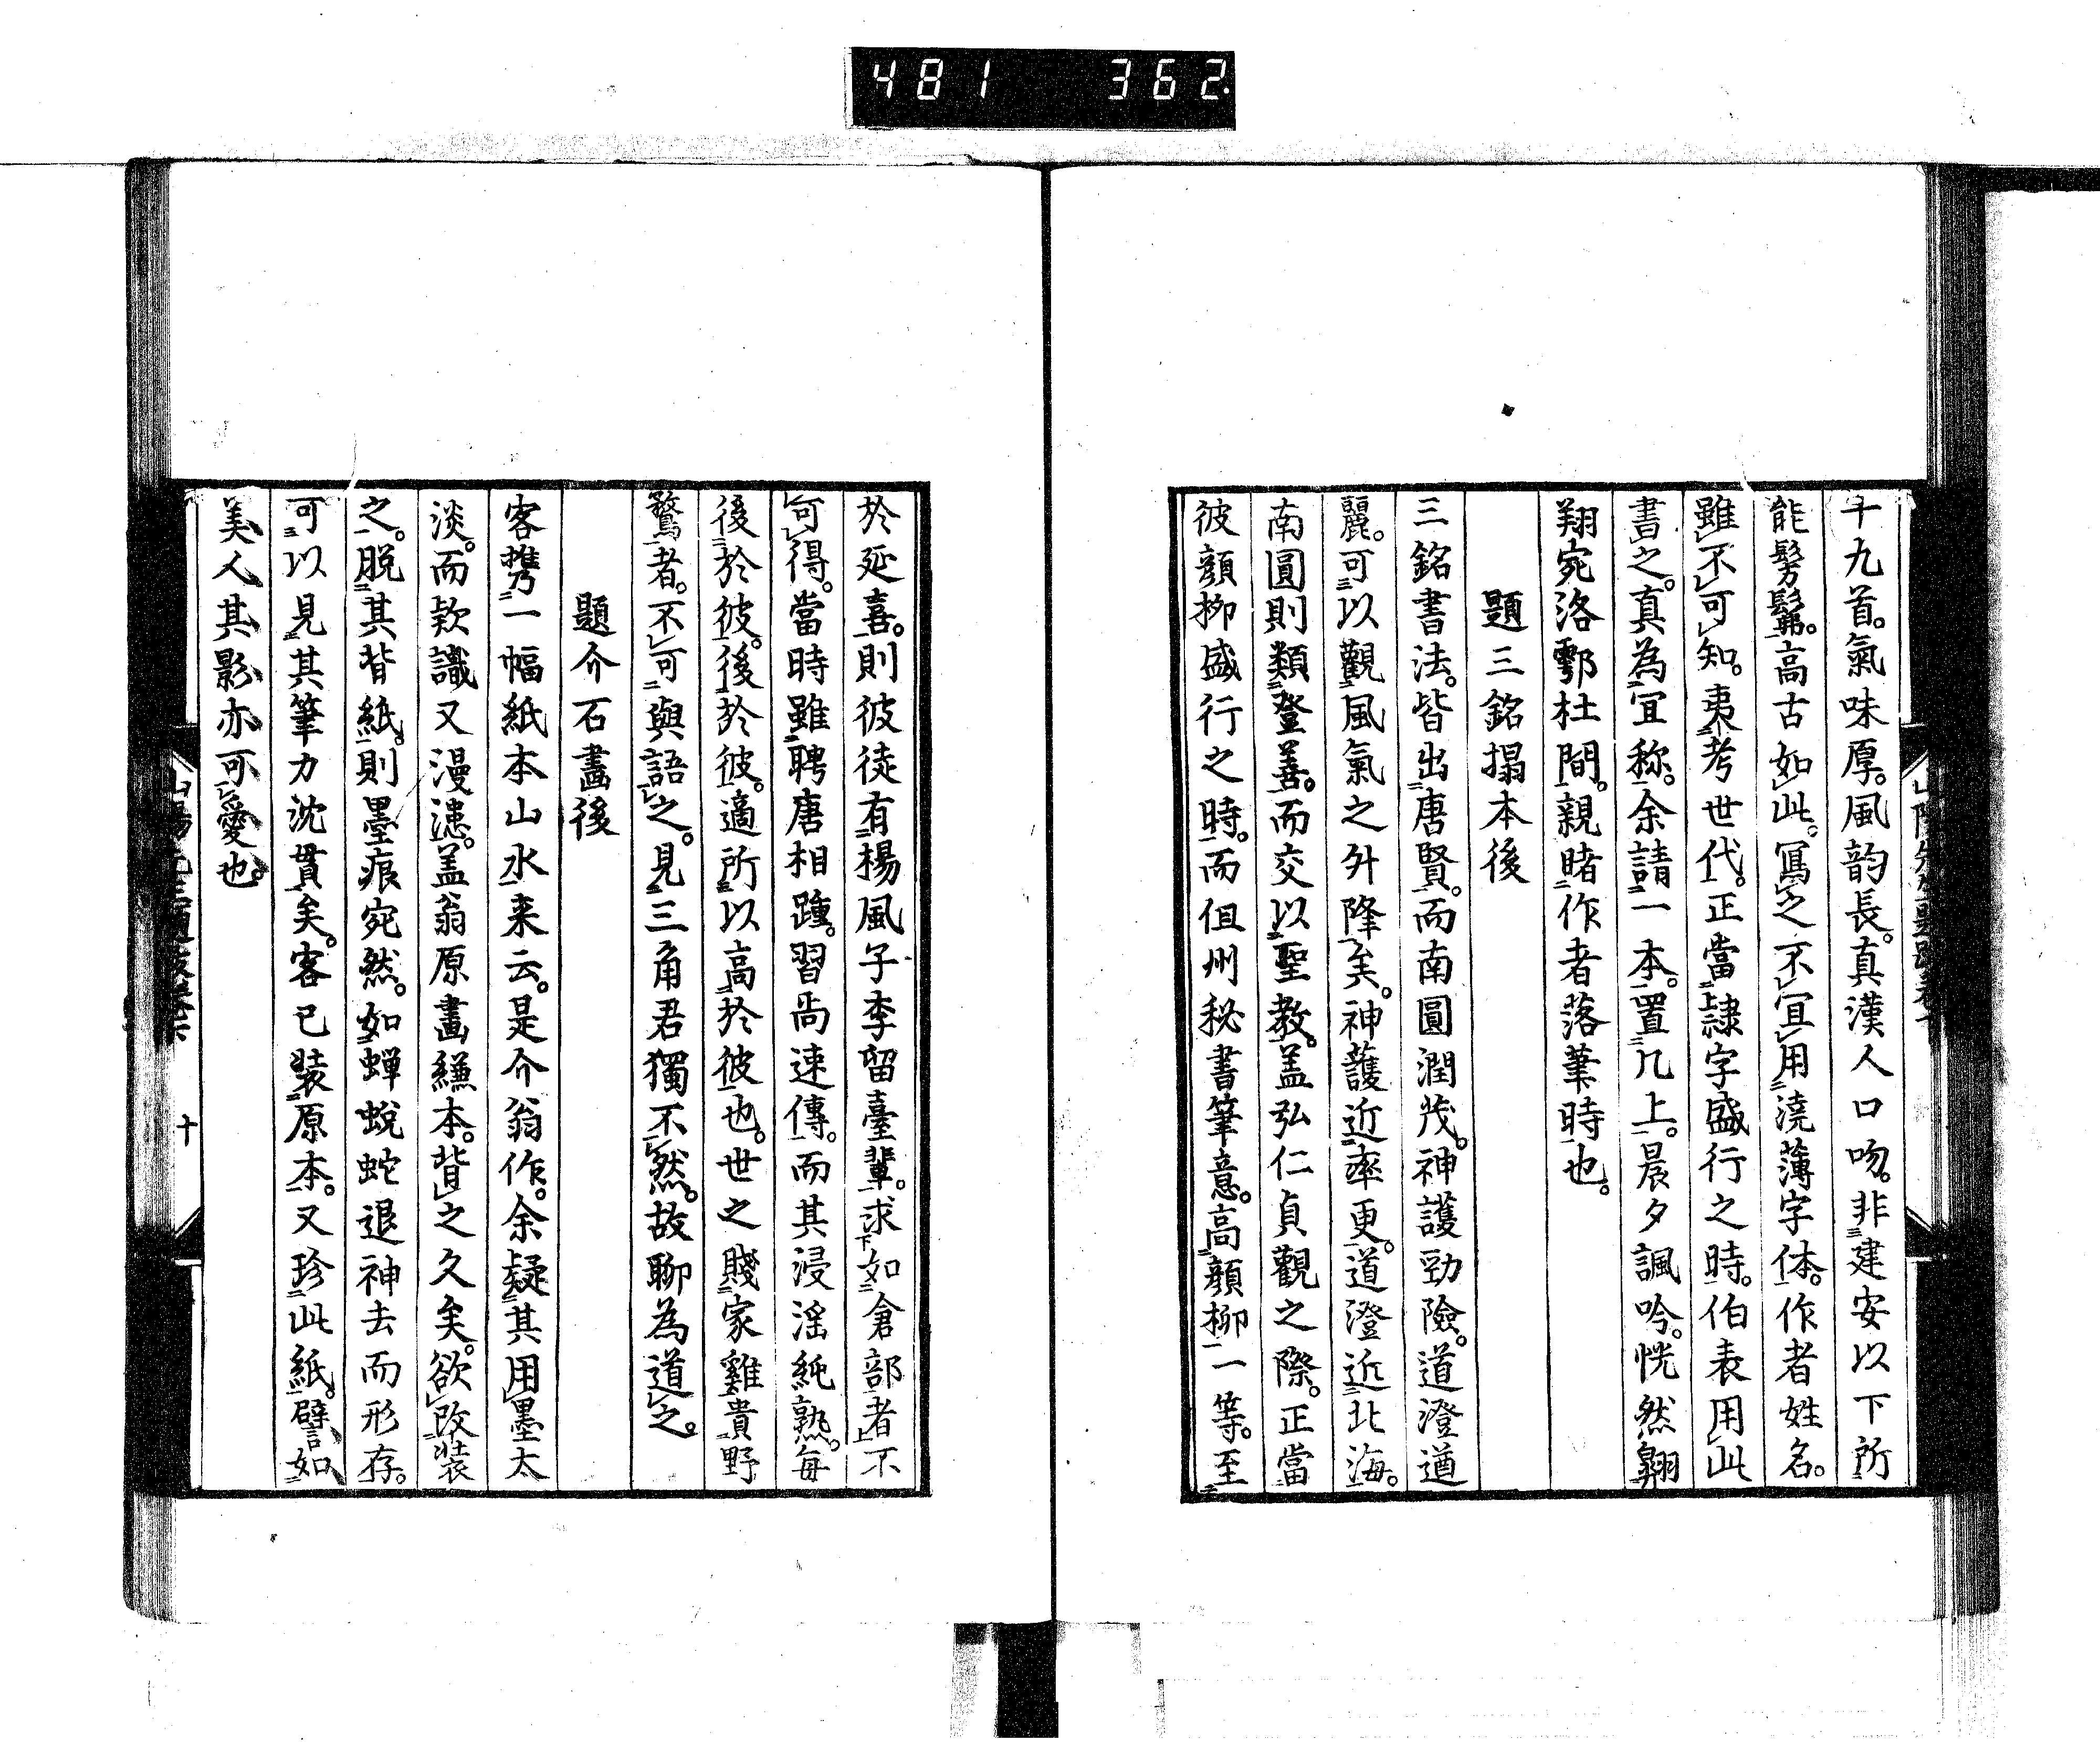 481 362
十九首。氣味厚。風韵長。真漢人口吻。非建安以下所
能髣髴。高古如此。寫之不宜用澆薄字体。作者姓名。
雖不可知。夷考世代。正當隷字盛行之時。伯表用此
書之。真為宜称。余請一本。置几上。晨夕諷吟。恍然翺
翔宛洛鄠杜間。親睹作者落筆時也。
題三銘搨本後
三銘書法。皆出唐賢。而南圓潤茂。神護勁險。道澄遒
麗。可以觀風氣之升降矣。神護近率更。道澄近北海。
南圓則類登善。而交以聖教。盖弘仁貞觀之際。正當
彼顔柳盛行之時。而但州秘書筆意。高顔柳一等。至
於延喜。則彼徒有楊風子李留臺輩。求如倉部者不
可得。當時雖聘唐相踵。習尚速傳。而其浸淫純熟。每
後於彼。後於彼。適所以高於彼也。世之賤家雞貴野
鶩者。不可與語之。見三角君獨不然。故聊為道之。
題介石畫後
客携一幅紙本山水来云。是介翁作。余疑其用墨太
淡。而欵識又漫漶。盖翁原畫縑本。背之久矣。欲改装
之。脱其背紙。則墨痕宛然。如蝉蛻蛇退神去而形存。
可以見其筆力沈貫矣。客已装原本。又珍此紙。譬如
美人其影亦可愛也。
十